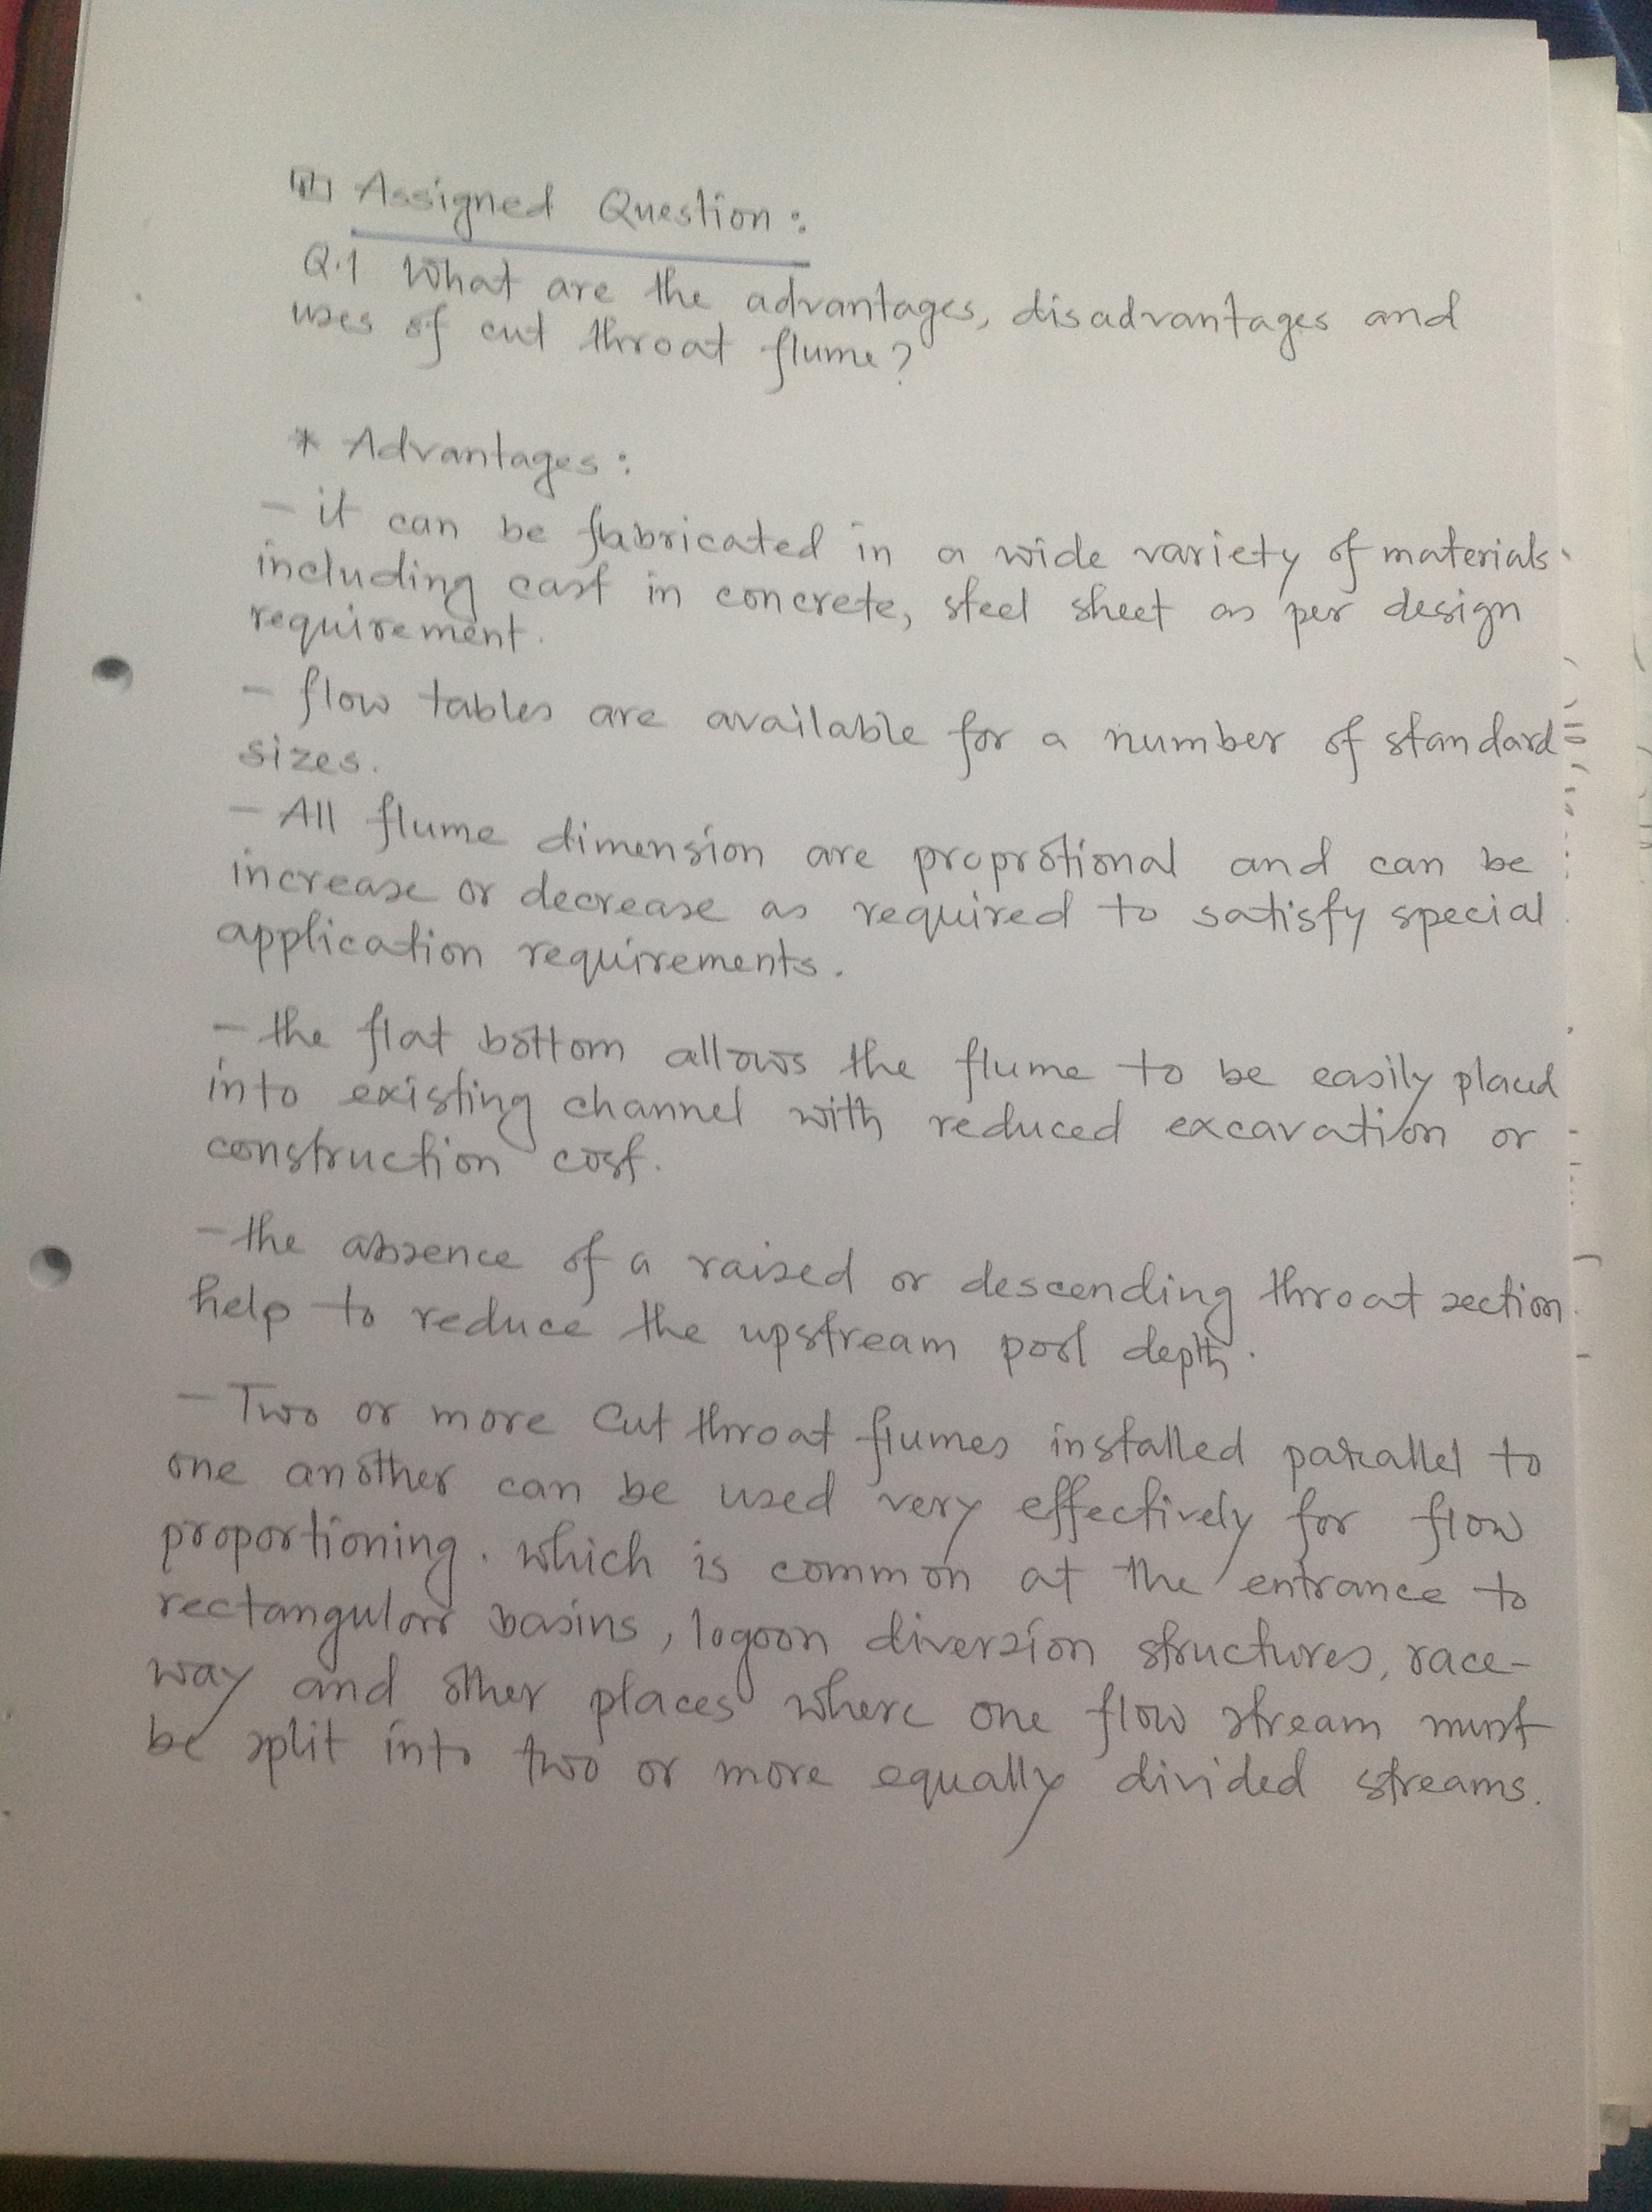 Assigned Question :
Q.1 What are the advantages, disadvantages and
uses of cut throat flume?
* Advantages :
- it can be fabricated in a wide variety of materials
including cast in concrete, steel sheet as per design
requirement.
- flow tables are available for a number of standard
sizes.
- All flume dimension are proprotional and can be
increase or decrease as required to satisfy special
application requirements.
- the flat bottom allows the flume to be easily placed
into existing channel with reduced excavation or
construction cost.
- the absence of a raised or descending throat section
help to reduce the upstream pool depth.
- Two or more Cut throat flumes installed parallel to
one another can be used very effectively for flow
proportioning. which is common at the entrance to
rectangular basins, logoon diversion structures, race-
way and other places where one flow stream must
be split into two or more equally divided streams.